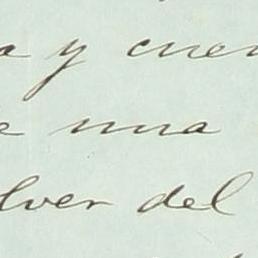 a y cuen
e una
lver del